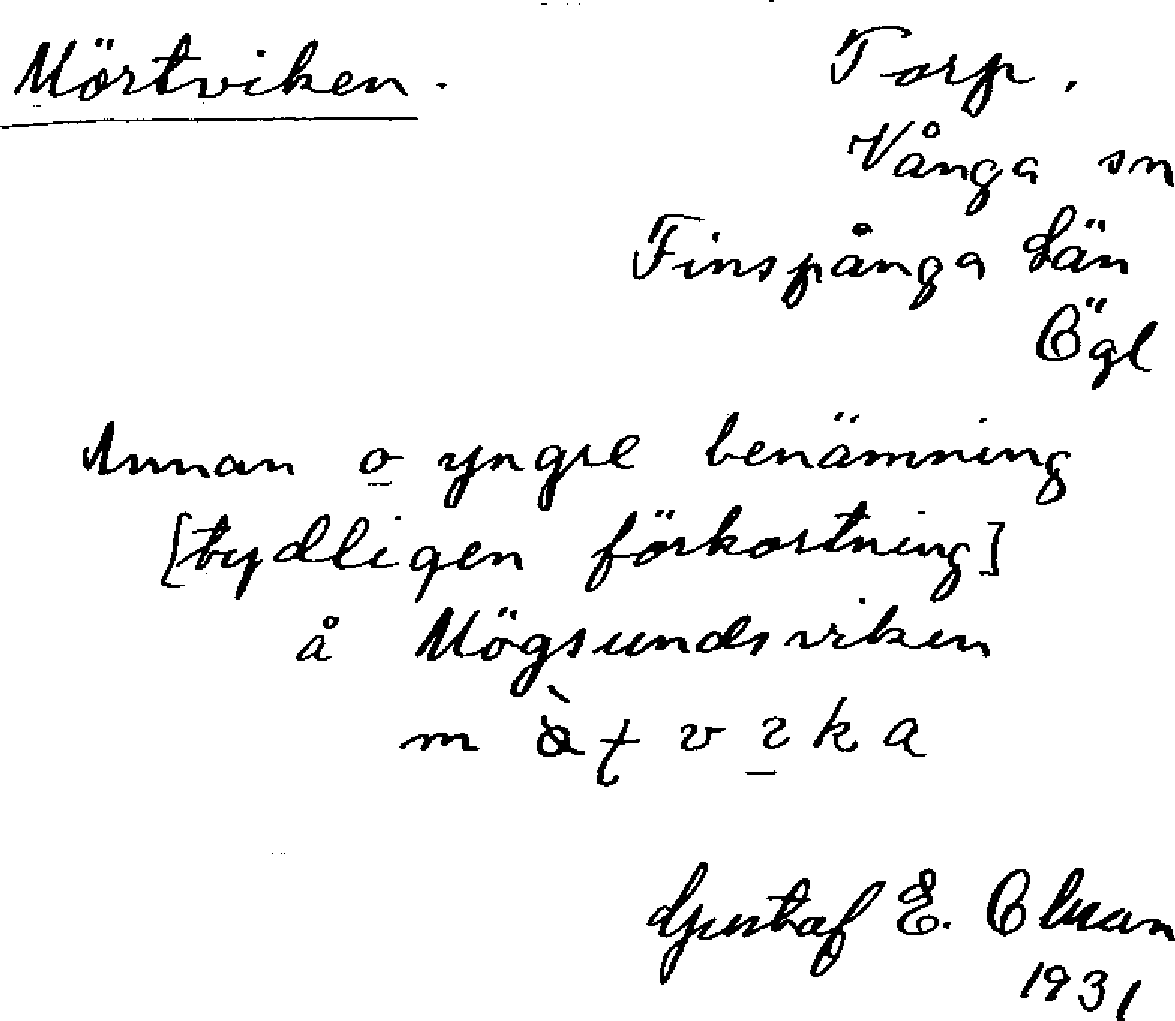 Mörtviken.
Torp.
Vånga sn
Finspånga Län
Ögl
Annan o yngre benämning
[tydligen förkortning]
å Mögsundsviken
Gustaf E. Olsson
1931